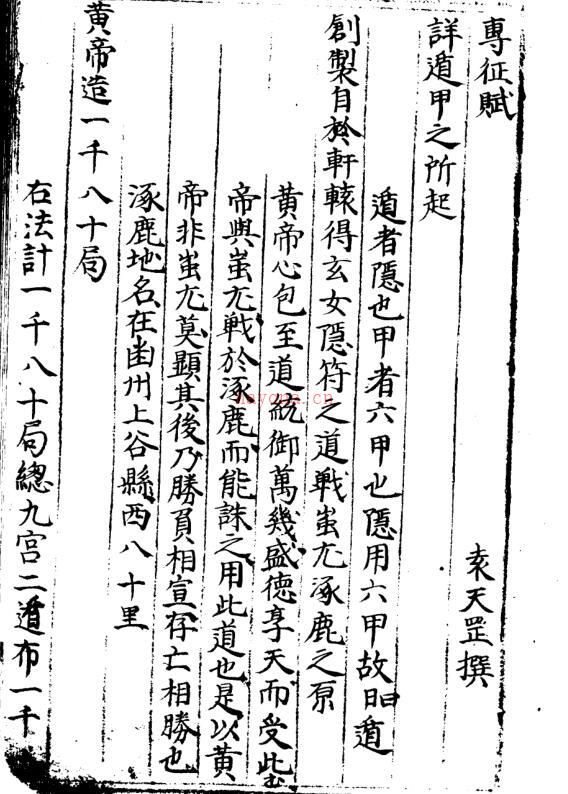 專征賦
袁天罡撰
詳遁甲之所起
遁者隱也甲者六甲也隱用六甲故曰遁
創製自於軒轅得玄女隱符之道戰蚩尤涿鹿之原
黃帝心包至道統御萬幾盛德享天而受此
帝與蚩尤戰於涿鹿而能誅之用此道也是以黃
帝非蚩尤莫顯其後乃勝負相宣存亡相勝也
涿鹿地名在幽州上谷縣西八十里
黃帝造一千八十局
右法計一千八十局總九宮二遁布一千
nayona.cn